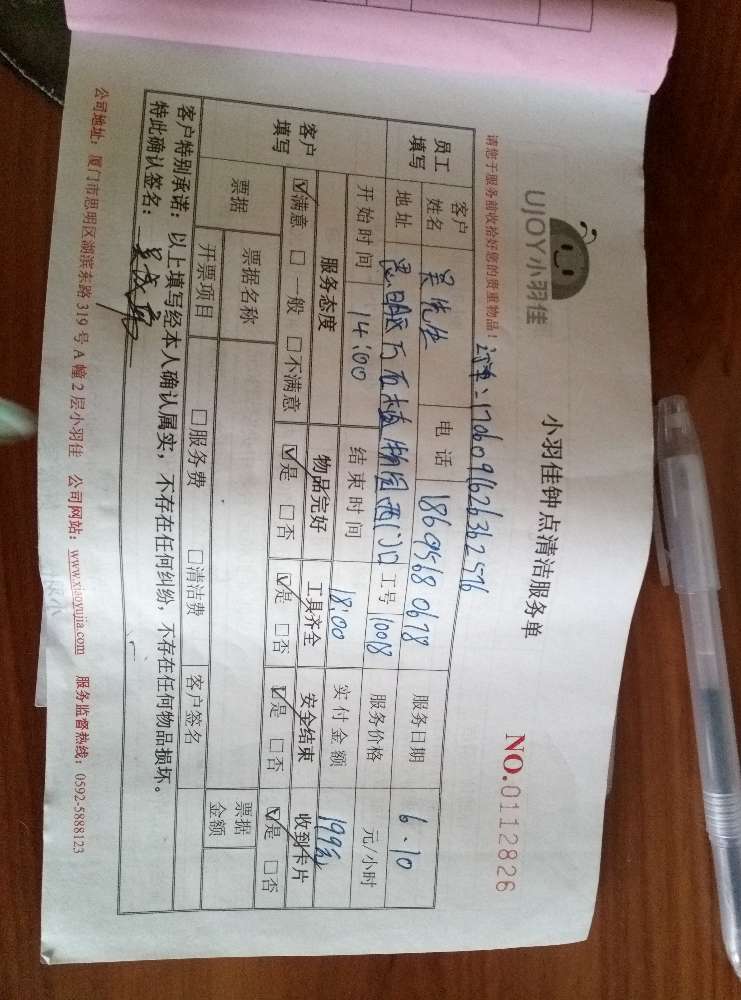 UJOY小羽佳
小羽佳钟点清洁服务单
NO.0112826
请您于服务前收拾好您的贵重物品！
订单：1706091626362576
员工填写 客户姓名 吴先生 电话 18695680678 服务日期 6.10
地址 思明区万石植物园西门口 工号 10018 服务价格 元/小时
开始时间 14:00 结束时间 18:00 实付金额 199元
客户填写 服务态度 物品完好 工具齐全 安全结束 收到卡片
☑满意 □一般 □不满意 ☑是 □否 ☑是 □否 ☑是 □否 ☑是 □否
票据 票据名称 票据金额
开票项目 □服务费 □清洁费 客户签名
客户特别承诺：以上填写经本人确认属实，不存在任何纠纷，不存在任何物品损坏。
特此确认签名：
公司地址：厦门市思明区湖滨东路319号A幢2层小羽佳 公司网站：www.xiaoyujia.com 服务监督热线：0592-5888123